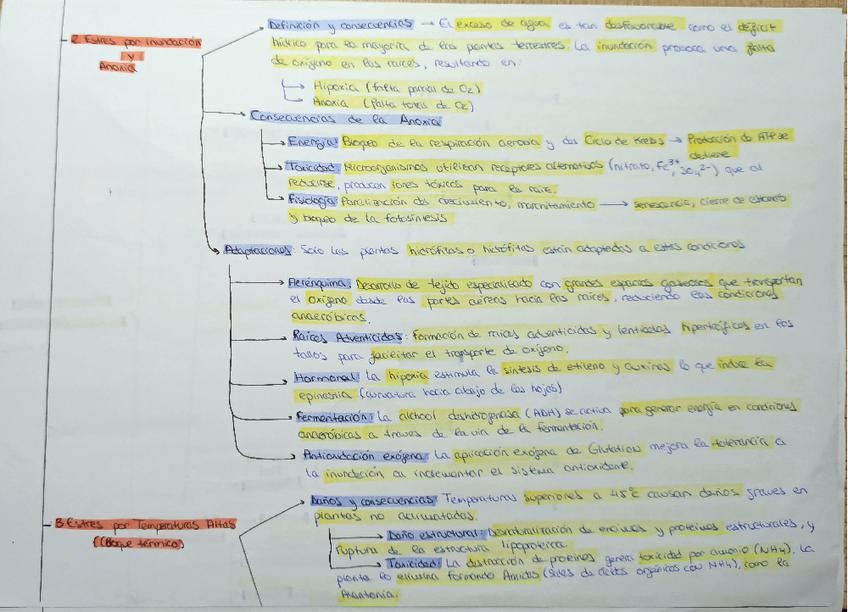 Definición y consecuencias → El exceso de agua es tan desfavorable como el déficit
2 Estres por Inundación
y
Anoxia
hídrico para la mayoría de las plantas terrestres. La inundación provoca una falta
de oxígeno en las raíces, resultando en:
Hipoxia (falta parcial de O₂)
Anoxia (falta total de O₂)
Consecuencias de la Anoxia
Energía: Bloqueo de la respiración aerobia y del Ciclo de Krebs → Producción de ATP se
detiene
Toxicidad: Microorganismos utilizan receptores alternativos (nitrato, Fe³⁺, SO₄²⁻) que al
reducirse, producen iones tóxicos para la raíz.
Fisiología: Paralización del crecimiento, marchitamiento → senescencia, cierre de estomas
y bloqueo de la fotosíntesis
Adaptaciones: Solo las plantas hidrófilas o hidrófitas están adaptadas a estas condiciones
Aerénquima: Desarrollo de tejido especializado con grandes espacios gaseosos que transportan
el oxígeno desde las partes aéreas hacia las raíces, reduciendo las condiciones
anaeróbicas.
Raíces Adventicias: Formación de raíces adventicias y lenticelas hipertróficas en los
tallos para facilitar el transporte de oxígeno.
Hormonal: La hipoxia estimula la síntesis de etileno y auxinas lo que induce la
epinastia (curvatura hacia abajo de las hojas)
Fermentación: La alchool deshidrogenasa (ADH) se activa para generar energía en condiciones
anaeróbicas a traves de la vía de la fermentación.
Antioxidación exógena: La aplicación exógena de Glutatión mejora la tolerancia a
la inundación al incrementar el sistema antioxidante.
3 Estres por Temperaturas Altas
(Choque térmico)
Daños y consecuencias: Temperaturas superiores a 45°C causan daños graves en
plantas no aclimatadas.
Daño estructural: Desnaturalización de enzimas y proteínas estructurales, y
ruptura de la estructura lipoproteica.
Toxicidad: La destrucción de proteínas genera toxicidad por amonio (NH₄). La
planta lo elimina formando Amidas (sales de ácidos orgánicos con NH₄), como la